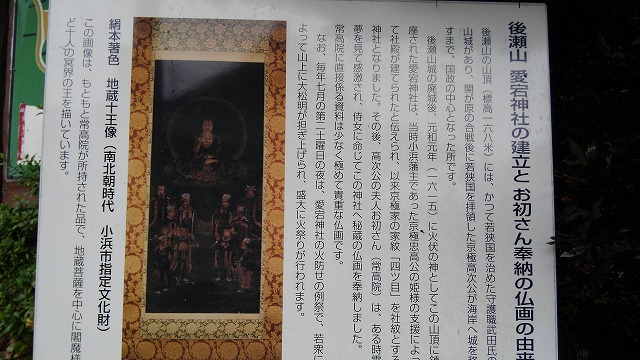 後瀬山 愛宕神社の建立と お初さん奉納の仏画の由来
後瀬山の山頂(標高一六八米)には、かつて若狭国を治めた守護職武田氏
山城があり、関が原の合戦後に若狭国を拝領した京極高次公が海岸へ城を
すまで、国政の中心となった所です。
後瀬山城の廃城後、元和元年(一六一五)に火伏の神としてこの山頂に
座された愛宕神社は、当時小浜藩主であった京極忠高公の姫様の支援によっ
て社殿が建てられたと伝えられ、以来京極家の家紋「四ツ目」を社紋とする
神社となりました。その後、高次公の夫人お初さん(常高院)は、ある時
夢を見て感激され、侍女に命じてこの神社へ秘蔵の仏画を奉納しました。
常高院に直接係る資料は少なく極めて貴重な仏画です。
なお、毎年七月の第二土曜の夜は、愛宕神社の火防せの例祭で、若衆に
よって山上に大松明が担ぎ上げられ、盛大に火祭りが行われます。
絹本著色 地蔵十王像(南北朝時代 小浜市指定文化財)
この画像は、もともと常高院が所持された品で、地蔵菩薩を中心に閻魔様
ど十人の冥界の王を描いています。